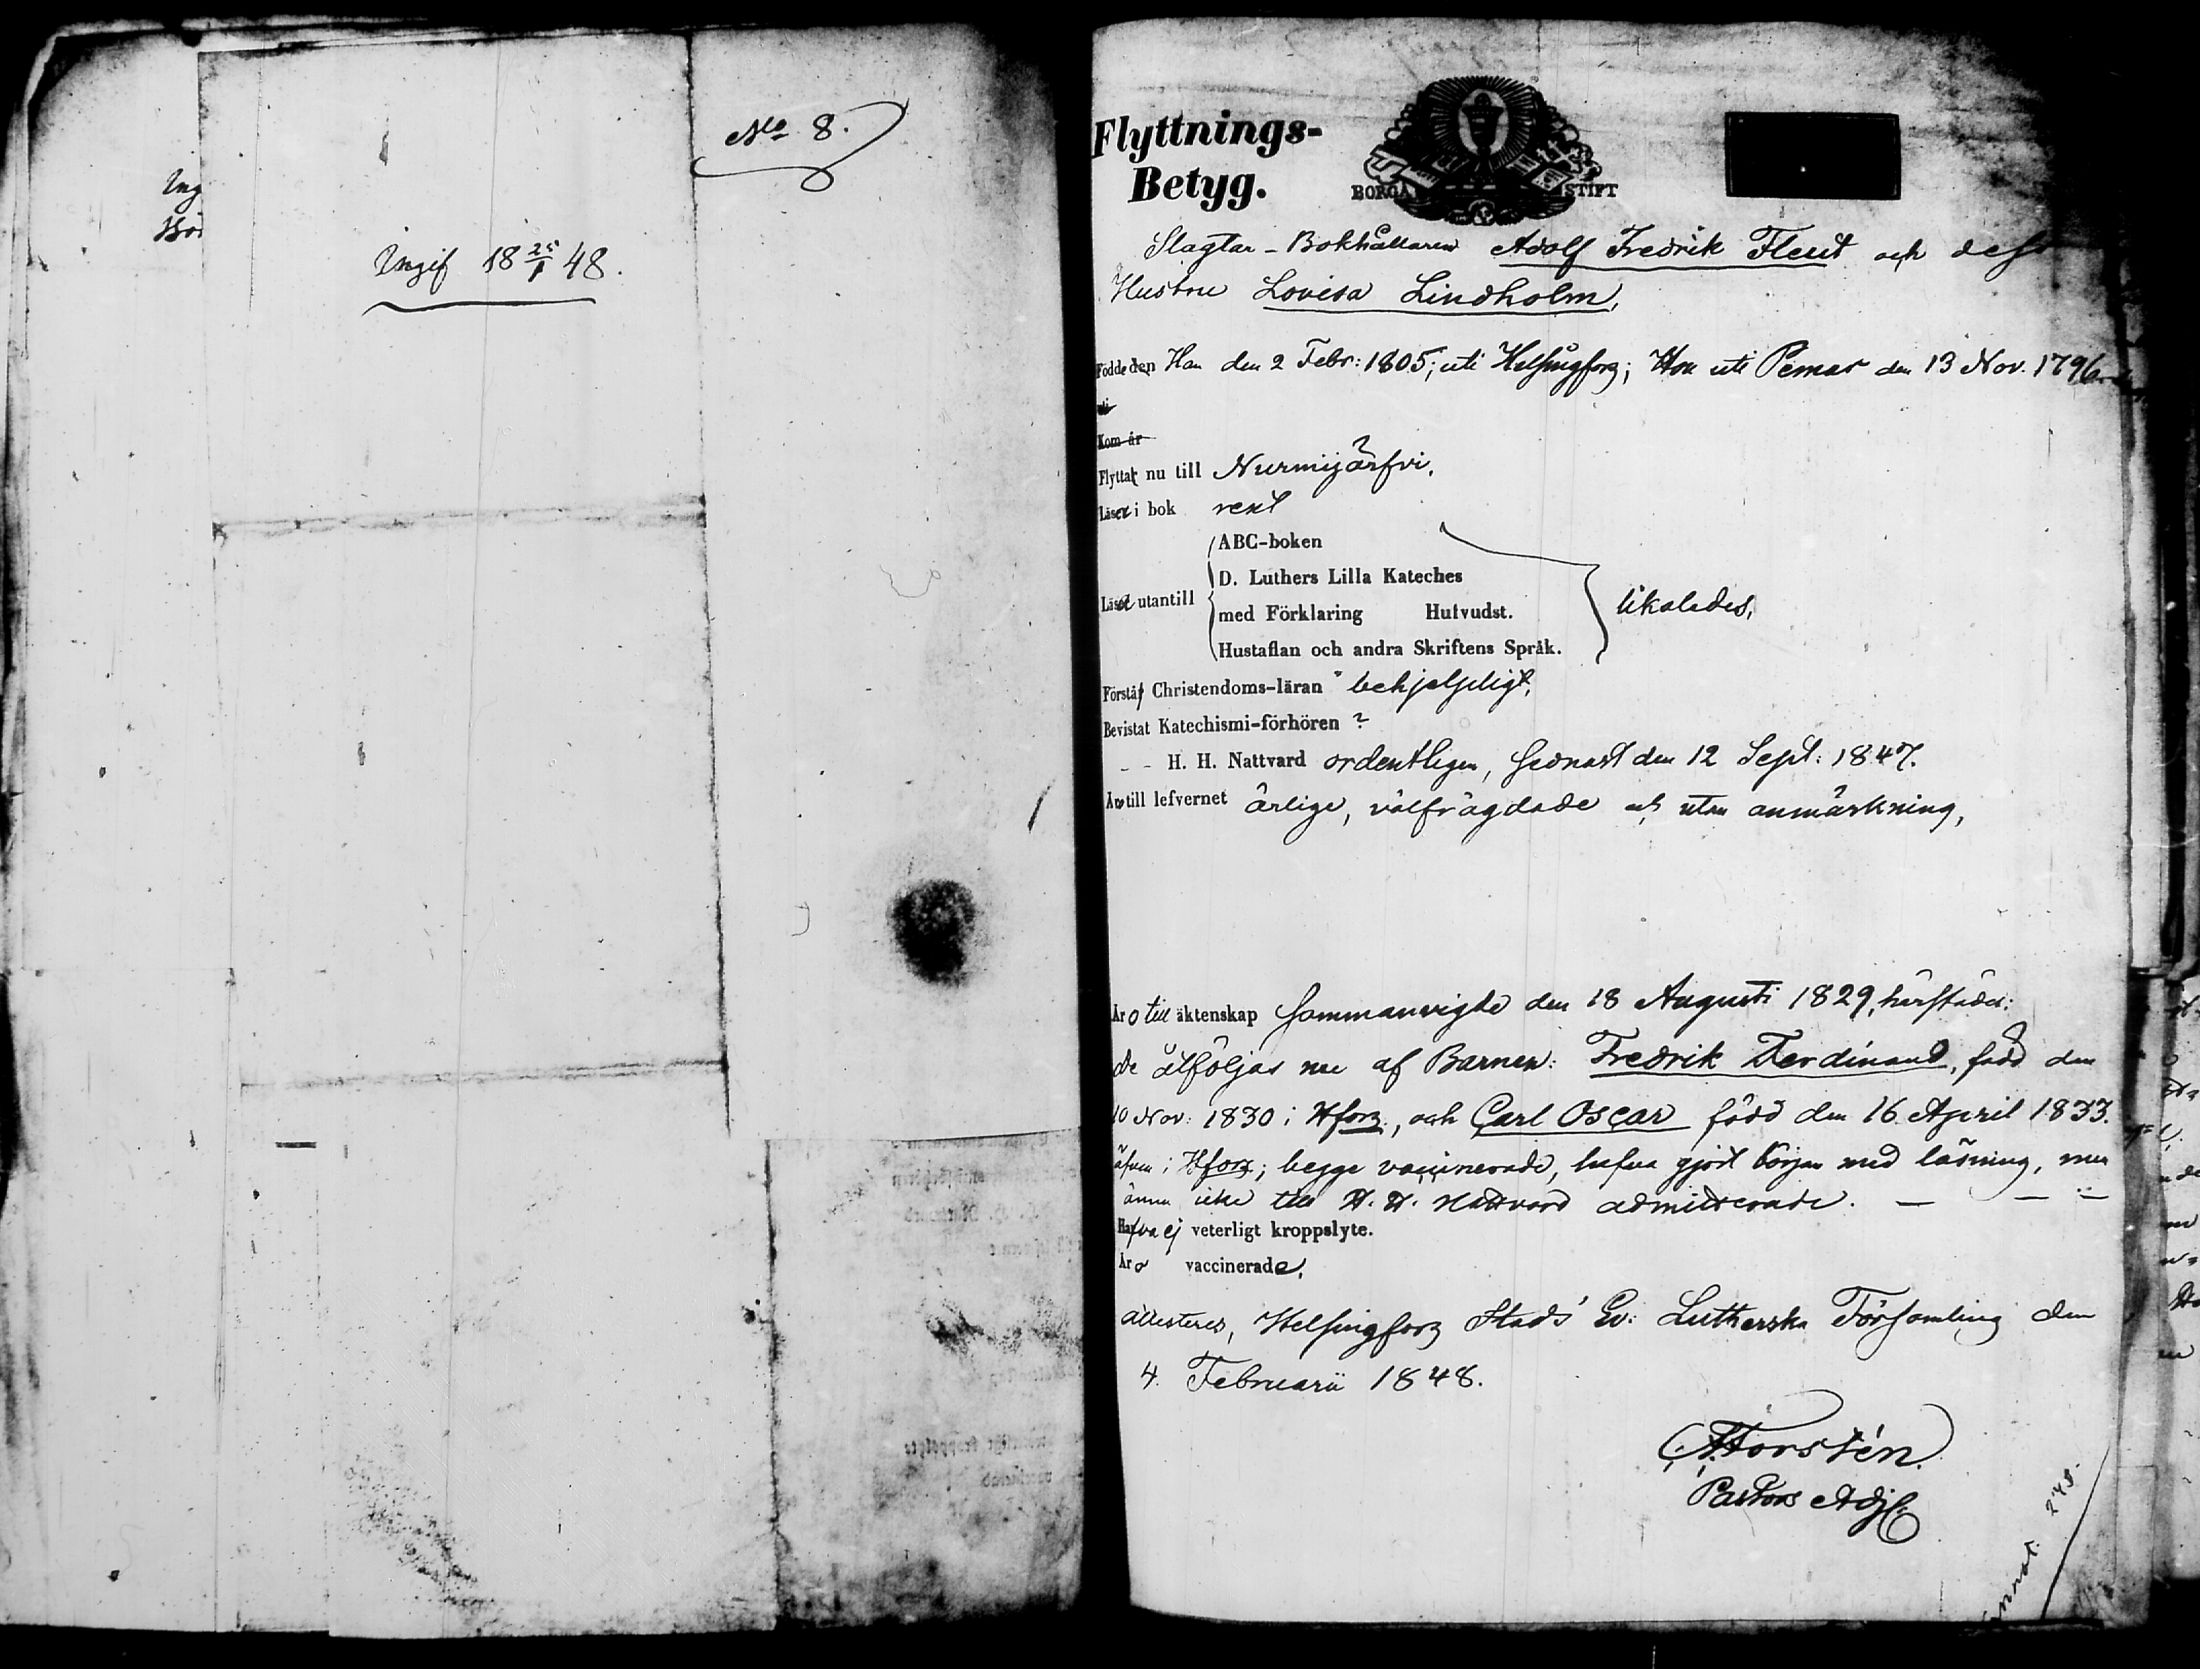 No 8.
Ing
Ingif 18 25/1 48.
Flyttnings-
Betyg.
BORGÅ STIFT
Slagtar-Bokhållaren Adolf Fredrik Fleut och dess
Hustru Lovisa Lindholm,
Födde den Han den 2 Febr: 1805; uti Helsingfors; Hon uti Pemar den 13 Nov. 1796.
uti
Kom år
Flytta nu till Nurmijärfvi.
Läser i bok rent
ABC-boken
D. Luthers Lilla Kateches
Läsa utantill
med Förklaring Hufvudst.
likaledes,
Hustaflan och andra Skriftens Språk.
Förstå Christendoms-läran behjelpligt,
Bevistat Katechismi-förhören ?
- - H. H. Nattvard ordentligen, sednast den 12 Sept: 1847.
Äro till lefvernet ärlige, välfrägdade och utan anmärkning,
Äro till äktenskap sammanvigde den 18 Augusti 1829, härstädes:
de åtföljas nu af Barnen: Fredrik Ferdinand, född den
10 Nov: 1830 i Hfors, och Carl Oscar född den 16 April 1833.
äfven i Hfors; begge vaccinerade, hafva gjort början med läsning, men
ännu icke till H. H. Nattvard admitterade. — — —
Hafva ej veterligt kroppslyte.
Äro vaccinerade,
attesteres, Helsingfors Stads Ev: Lutherska Församling den
4. Februarii 1848.
Forstén.
Pastors Adj.
245.